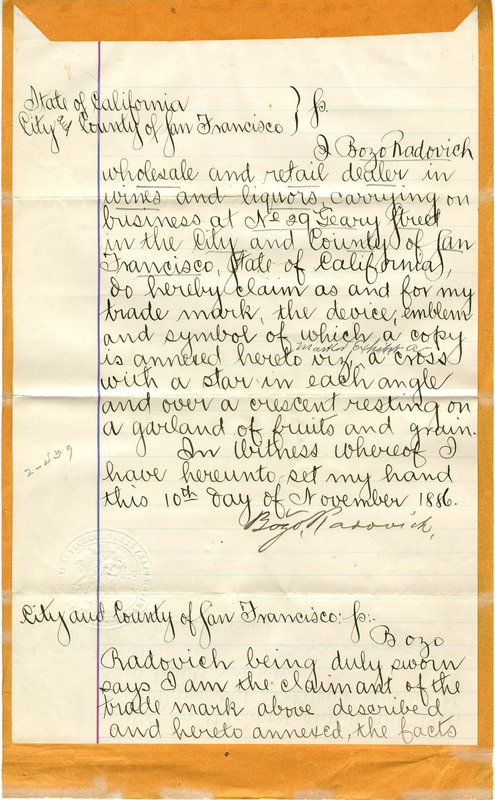 State of California
City & County of San Francisco } ss.
I Bozo Radovich
wholesale and retail dealer in
wines and liquors, carrying on
business at No 29 Geary Street
in the City and County of San
Francisco, State of California,
do hereby claim as and for my
trade mark, the device, emblem
and symbol of which a copy
marked Exhibit A
is annexed hereto viz, a cross
with a star in each angle
and over a crescent resting on
a garland of fruits and grain.
In Witness whereof I
have hereunto set my hand
this 10th day of November 1886.
Bozo, Radovich,
2-439
City and County of San Francisco: ss:.
Bozo
Radovich being duly sworn
says I am the claimant of the
trade mark above described
and hereto annexed, the facts